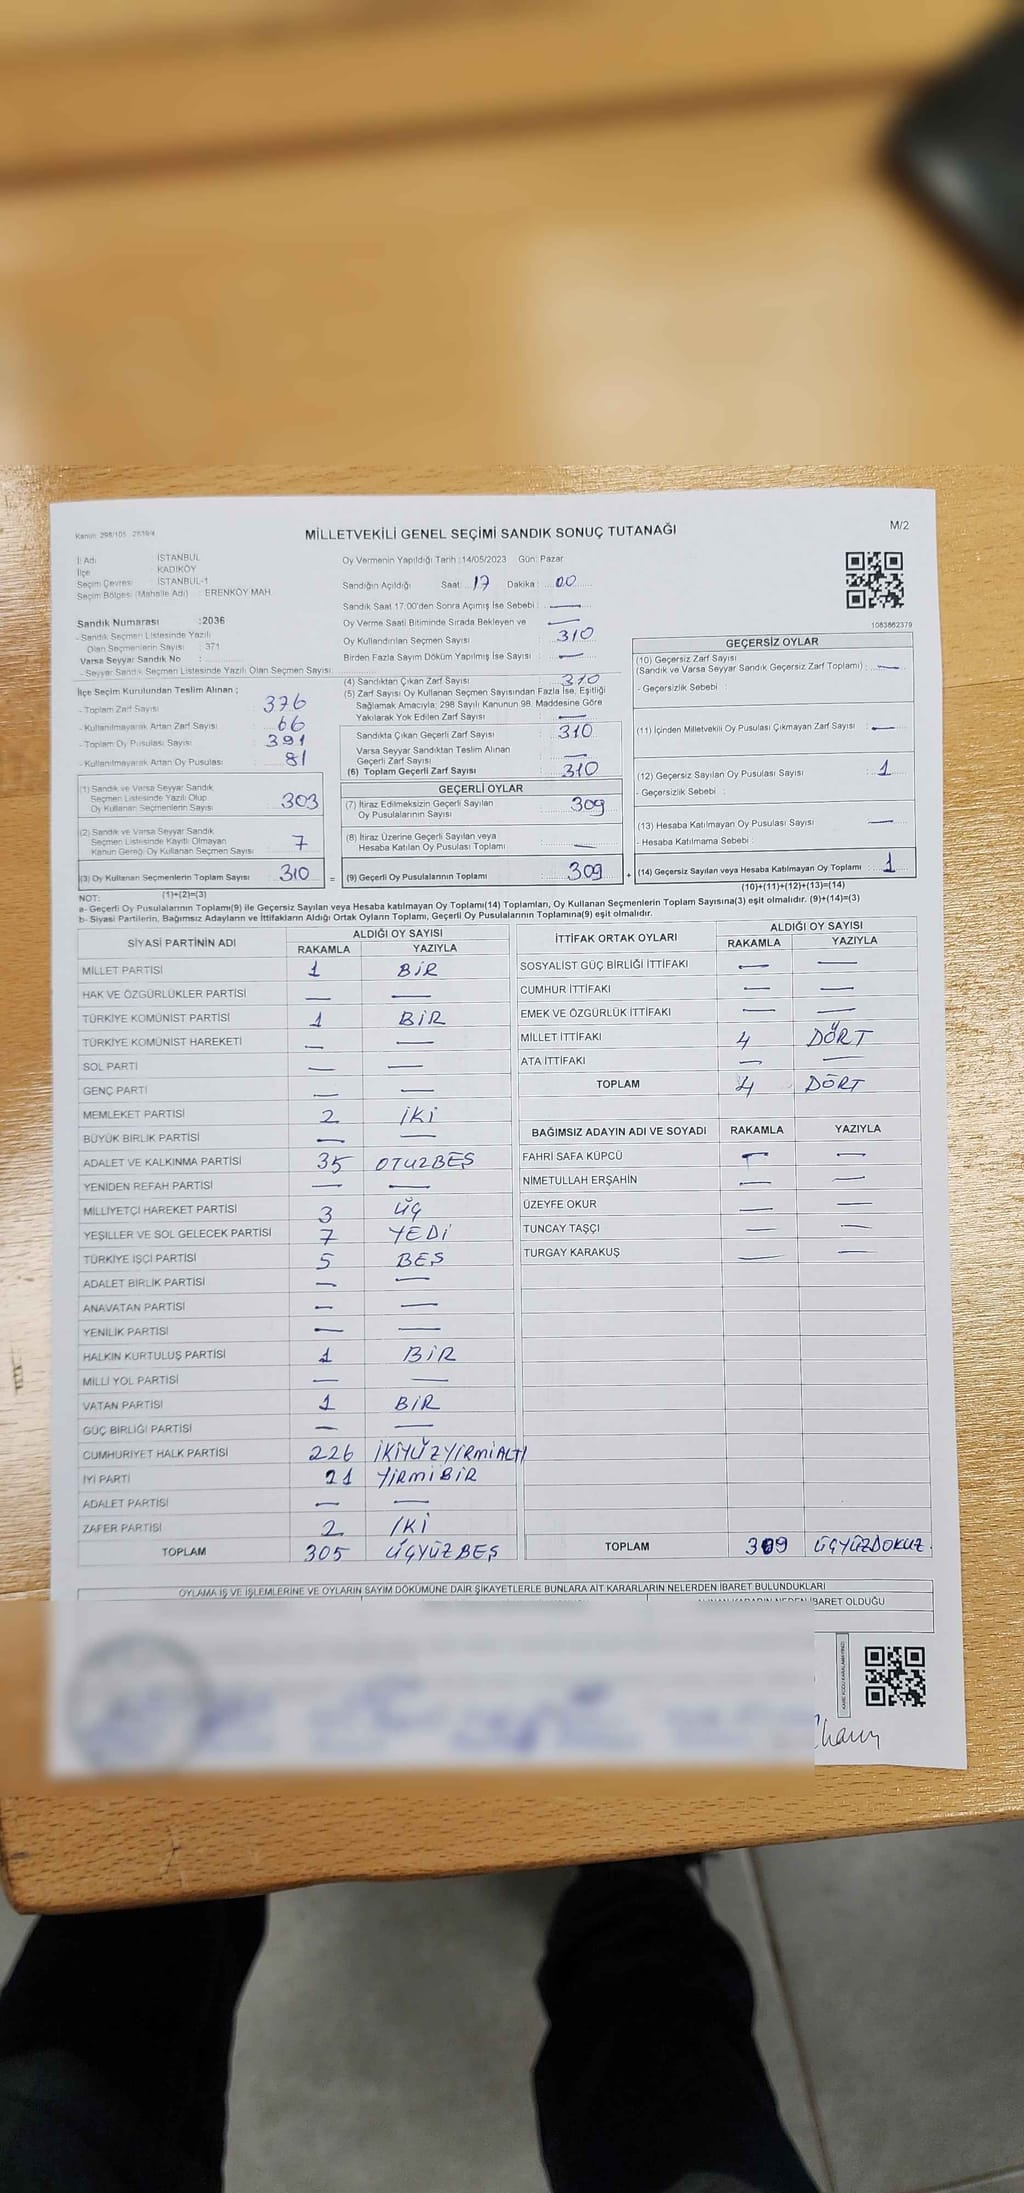 Kanun: 298/105 2839/4
MİLLETVEKİLİ GENEL SEÇİMİ SANDIK SONUÇ TUTANAĞI
M/2
İl Adı : İSTANBUL
İlçe : KADIKÖY
Seçim Çevresi : İSTANBUL-1
Seçim Bölgesi (Mahalle Adı) : ERENKÖY MAH.
Oy Vermenin Yapıldığı Tarih :14/05/2023 Gün: Pazar
Sandığın Açıldığı Saat: 17 Dakika: 00
Sandık Saat 17:00'den Sonra Açımış İse Sebebi : —
Oy Verme Saati Bitiminde Sırada Bekleyen ve —
Oy Kullandırılan Seçmen Sayısı 310
Birden Fazla Sayım Döküm Yapılmış İse Sayısı : —
1083862379
Sandık Numarası :2036
- Sandık Seçmen Listesinde Yazılı
Olan Seçmenlerin Sayısı : 371
Varsa Seyyar Sandık No :
- Seyyar Sandık Seçmen Listesinde Yazılı Olan Seçmen Sayısı:
İlçe Seçim Kurulundan Teslim Alınan ;
- Toplam Zarf Sayısı : 376
- Kullanılmayarak Artan Zarf Sayısı : 66
- Toplam Oy Pusulası Sayısı : 391
- Kullanılmayarak Artan Oy Pusulası : 81
(1) Sandık ve Varsa Seyyar Sandık
Seçmen Listesinde Yazılı Olup
Oy Kullanan Seçmenlerin Sayısı 303
(2) Sandık ve Varsa Seyyar Sandık
Seçmen Listesinde Kayıtlı Olmayan
Kanun Gereği Oy Kullanan Seçmen Sayısı 7
(3) Oy Kullanan Seçmenlerin Toplam Sayısı 310
(1)+(2)=(3)
(4) Sandıktan Çıkan Zarf Sayısı 310
(5) Zarf Sayısı Oy Kullanan Seçmen Sayısından Fazla İse, Eşitliği
Sağlamak Amacıyla; 298 Sayılı Kanunun 98. Maddesine Göre
Yakılarak Yok Edilen Zarf Sayısı —
Sandıkta Çıkan Geçerli Zarf Sayısı : 310
Varsa Seyyar Sandıktan Teslim Alınan
Geçerli Zarf Sayısı —
(6) Toplam Geçerli Zarf Sayısı : 310
GEÇERLİ OYLAR
(7) İtiraz Edilmeksizin Geçerli Sayılan
Oy Pusulalarının Sayısı : 309
(8) İtiraz Üzerine Geçerli Sayılan veya
Hesaba Katılan Oy Pusulası Toplamı —
= (9) Geçerli Oy Pusulalarının Toplamı : 309 +
GEÇERSİZ OYLAR
(10) Geçersiz Zarf Sayısı
(Sandık ve Varsa Seyyar Sandık Geçersiz Zarf Toplamı) : —
- Geçersizlik Sebebi :
(11) İçinden Milletvekili Oy Pusulası Çıkmayan Zarf Sayısı : —
(12) Geçersiz Sayılan Oy Pusulası Sayısı : 1
- Geçersizlik Sebebi :
(13) Hesaba Katılmayan Oy Pusulası Sayısı —
- Hesaba Katılmama Sebebi :
(14) Geçersiz Sayılan veya Hesaba Katılmayan Oy Toplamı : 1
(10)+(11)+(12)+(13)=(14)
NOT:
a- Geçerli Oy Pusulalarının Toplamı(9) ile Geçersiz Sayılan veya Hesaba katılmayan Oy Toplamı(14) Toplamları, Oy Kullanan Seçmenlerin Toplam Sayısına(3) eşit olmalıdır. (9)+(14)=(3)
b- Siyasi Partilerin, Bağımsız Adayların ve İttifakların Aldığı Ortak Oyların Toplamı, Geçerli Oy Pusulalarının Toplamına(9) eşit olmalıdır.
SİYASİ PARTİNİN ADI ALDIĞI OY SAYISI
RAKAMLA YAZIYLA
MİLLET PARTİSİ 1 BİR
HAK VE ÖZGÜRLÜKLER PARTİSİ — —
TÜRKİYE KOMÜNİST PARTİSİ 1 BİR
TÜRKİYE KOMÜNİST HAREKETİ — —
SOL PARTİ — —
GENÇ PARTİ — —
MEMLEKET PARTİSİ 2 İKİ
BÜYÜK BİRLİK PARTİSİ — —
ADALET VE KALKINMA PARTİSİ 35 OTUZBEŞ
YENİDEN REFAH PARTİSİ — —
MİLLİYETÇİ HAREKET PARTİSİ 3 ÜÇ
YEŞİLLER VE SOL GELECEK PARTİSİ 7 YEDİ
TÜRKİYE İŞÇİ PARTİSİ 5 BEŞ
ADALET BİRLİK PARTİSİ — —
ANAVATAN PARTİSİ — —
YENİLİK PARTİSİ — —
HALKIN KURTULUŞ PARTİSİ 1 BİR
MİLLİ YOL PARTİSİ — —
VATAN PARTİSİ 1 BİR
GÜÇ BİRLİĞİ PARTİSİ — —
CUMHURİYET HALK PARTİSİ 226 İKİYÜZYİRMİALTI
İYİ PARTİ 21 YİRMİBİR
ADALET PARTİSİ — —
ZAFER PARTİSİ 2 İKİ
TOPLAM 305 ÜÇYÜZBEŞ
İTTİFAK ORTAK OYLARI ALDIĞI OY SAYISI
RAKAMLA YAZIYLA
SOSYALİST GÜÇ BİRLİĞİ İTTİFAKI — —
CUMHUR İTTİFAKI — —
EMEK VE ÖZGÜRLÜK İTTİFAKI — —
MİLLET İTTİFAKI 4 DÖRT
ATA İTTİFAKI — —
TOPLAM 4 DÖRT
BAĞIMSIZ ADAYIN ADI VE SOYADI RAKAMLA YAZIYLA
FAHRİ SAFA KÜPCÜ — —
NİMETULLAH ERŞAHİN — —
ÜZEYFE OKUR — —
TUNCAY TAŞÇI — —
TURGAY KARAKUŞ — —
TOPLAM 309 ÜÇYÜZDOKUZ
OYLAMA İŞ VE İŞLEMLERİNE VE OYLARIN SAYIM DÖKÜMÜNE DAİR ŞİKAYETLERLE BUNLARA AİT KARARLARIN NELERDEN İBARET BULUNDUKLARI
İBARET OLDUĞU